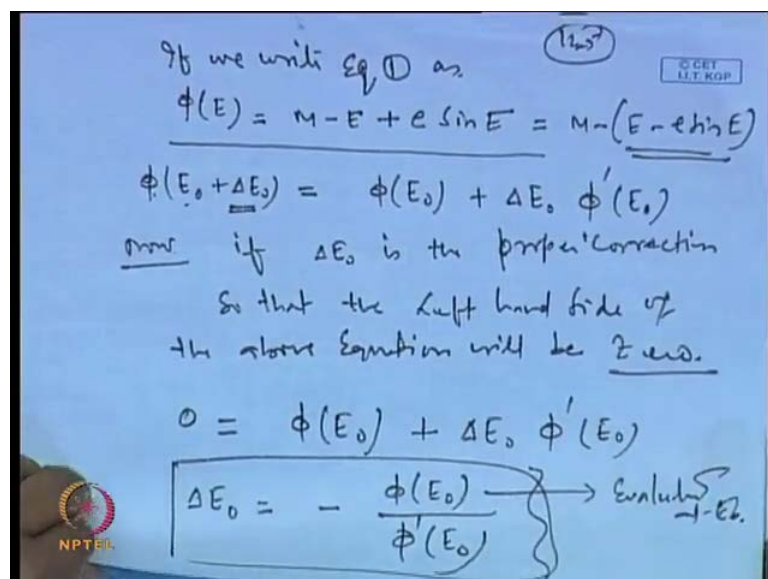 If we write Eq ① as
© CET
I.I.T. KGP
ϕ(E) = M - E + e sin E = M - (E - e sin E)
ϕ(E₀ + ΔE₀) = ϕ(E₀) + ΔE₀ ϕ'(E₀)
now if ΔE₀ is the proper correction
So that the Left hand Side of
the above Equation will be Zero.
0 = ϕ(E₀) + ΔE₀ ϕ'(E₀)
ΔE₀ = - ϕ(E₀) / ϕ'(E₀) → Evaluated
at E₀.
NPTEL